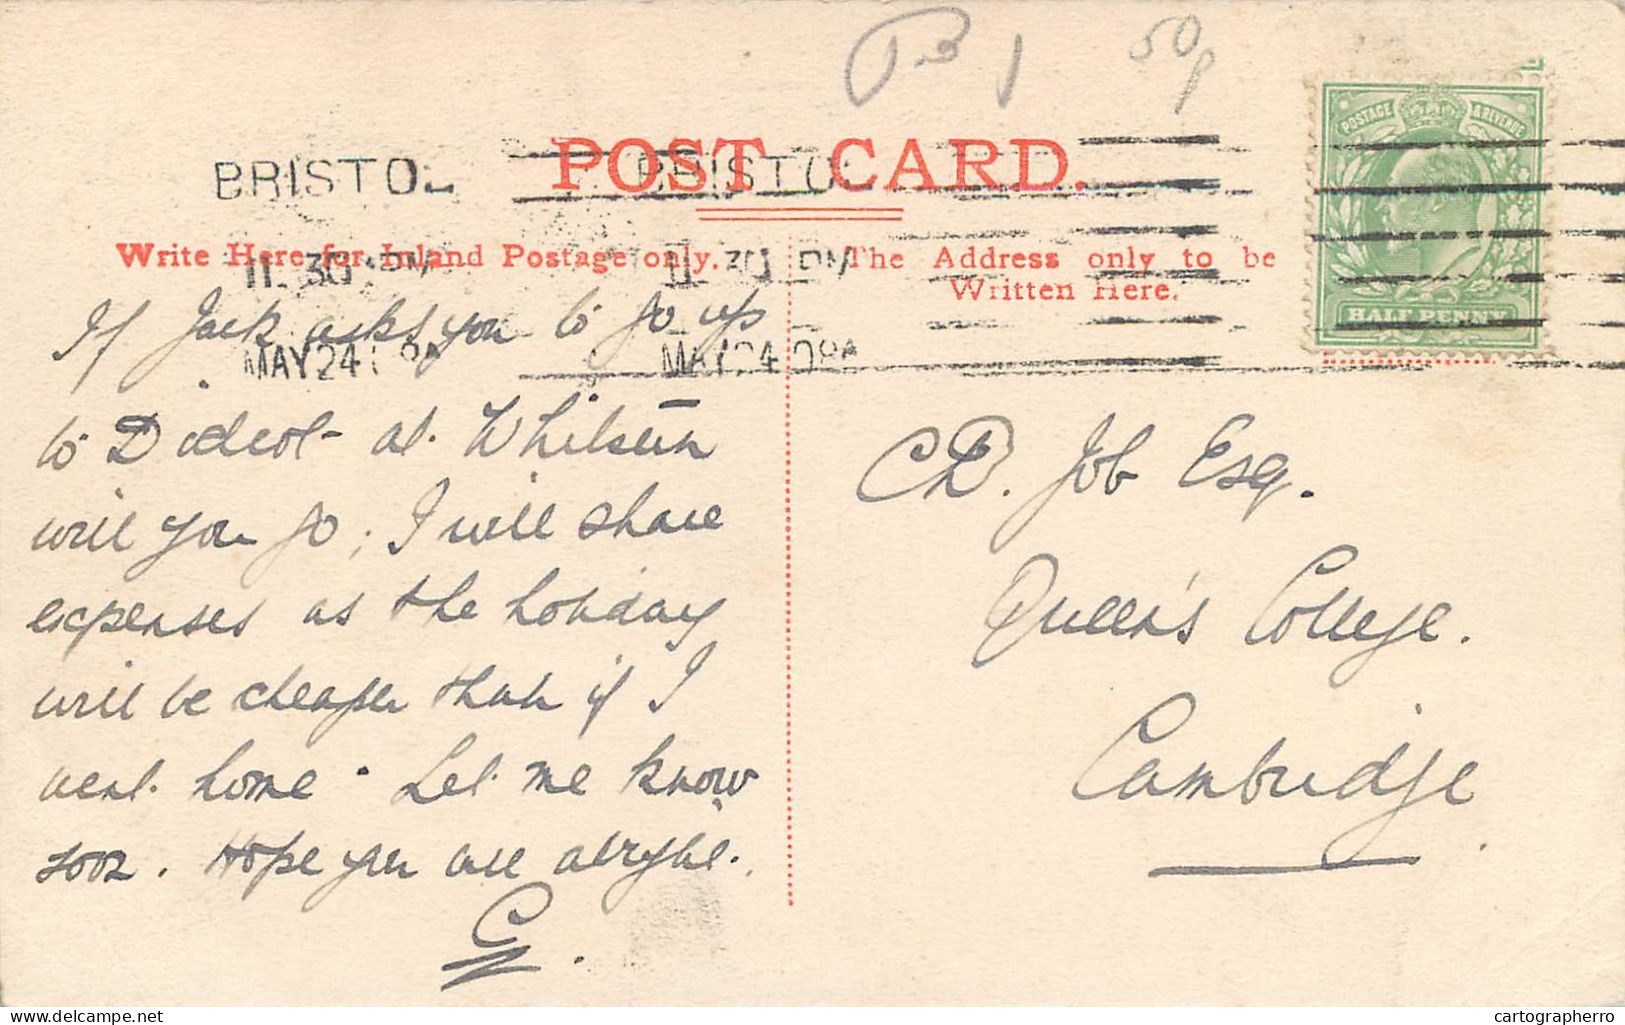 50p
POST CARD.
BRISTOL
BRISTOL
11.30 PM
11.30 PM
MAY 24 08
MAY 24 08
POSTAGE & REVENUE
HALF PENNY
Write Here for Inland Postage only.
The Address only to be
Written Here.
If Jack asks you to go up
to Didcot at Whitsun
will you go; I will share
expenses as the holiday
will be cheaper than if I
went home. Let me know
soon. Hope you are alright.
C.
Job Esq.
Queen's College.
Cambridge.
delcampe.net
cartographerro